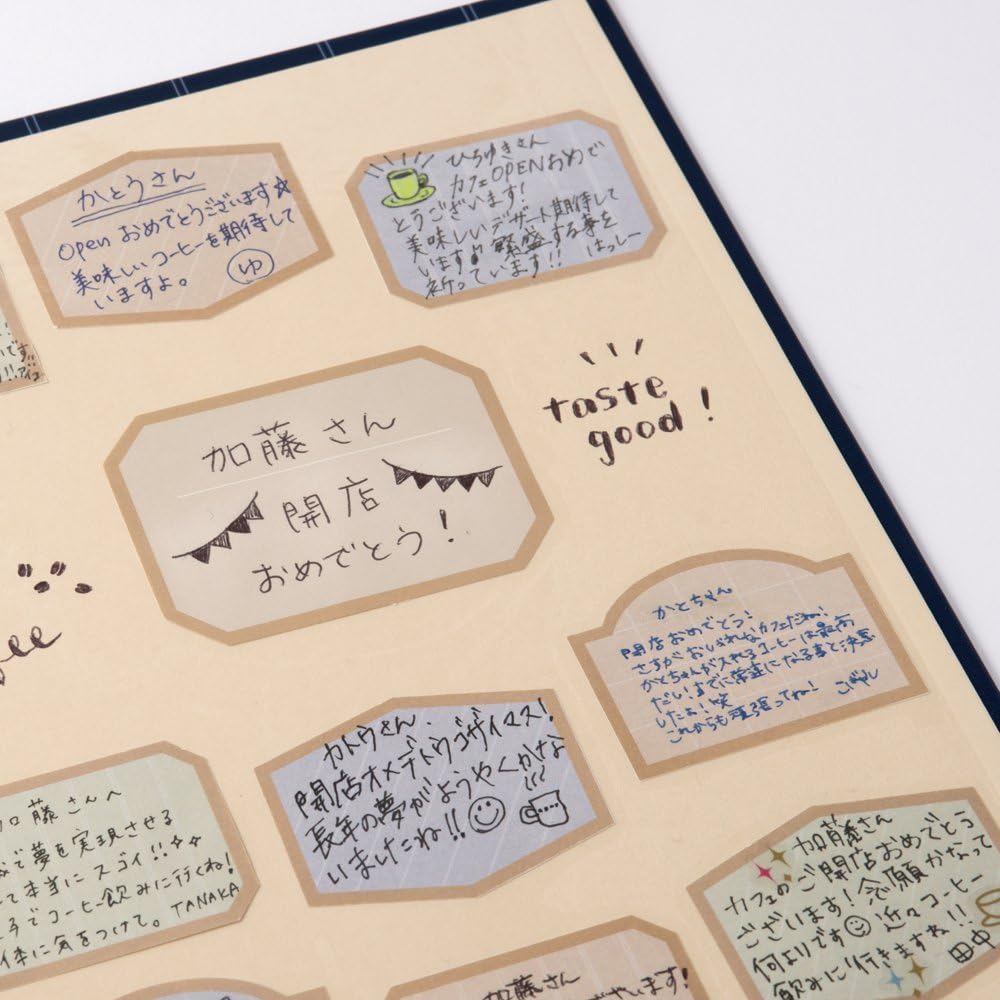 かとうさん
Open おめでとうございます☆
美味しいコーヒーを期待して
いますよ。 ゆ
ひろゆきさん
カフェOPENおめで
とうございます!
美味しいデザート期待して
います♪ 繁盛する事を
祈っています!! はっしー
です
!! アイコ
加藤さん
開店
おめでとう!
taste
good!
かとちゃん
開店おめでとう!
さすがおしゃれなカフェだね!
かとちゃんが入れるコーヒーは最高
だし!すでに常連になる事を決意
したよ!笑
これからも頑張ってね!
カトウさん、
開店オメデトウゴザイマス!
長年の夢がようやくかな
いましたね!!
加藤さんへ
で夢を実現させる
て本当にスゴイ!!
でコーヒー飲みに行くね!
体に気をつけて。TANAKA
加藤さん
カフェのご開店おめでとう
ございます!念願かなって
何よりです 近々コーヒー
飲みに行きますね!!
田中
加藤さん
ございます!